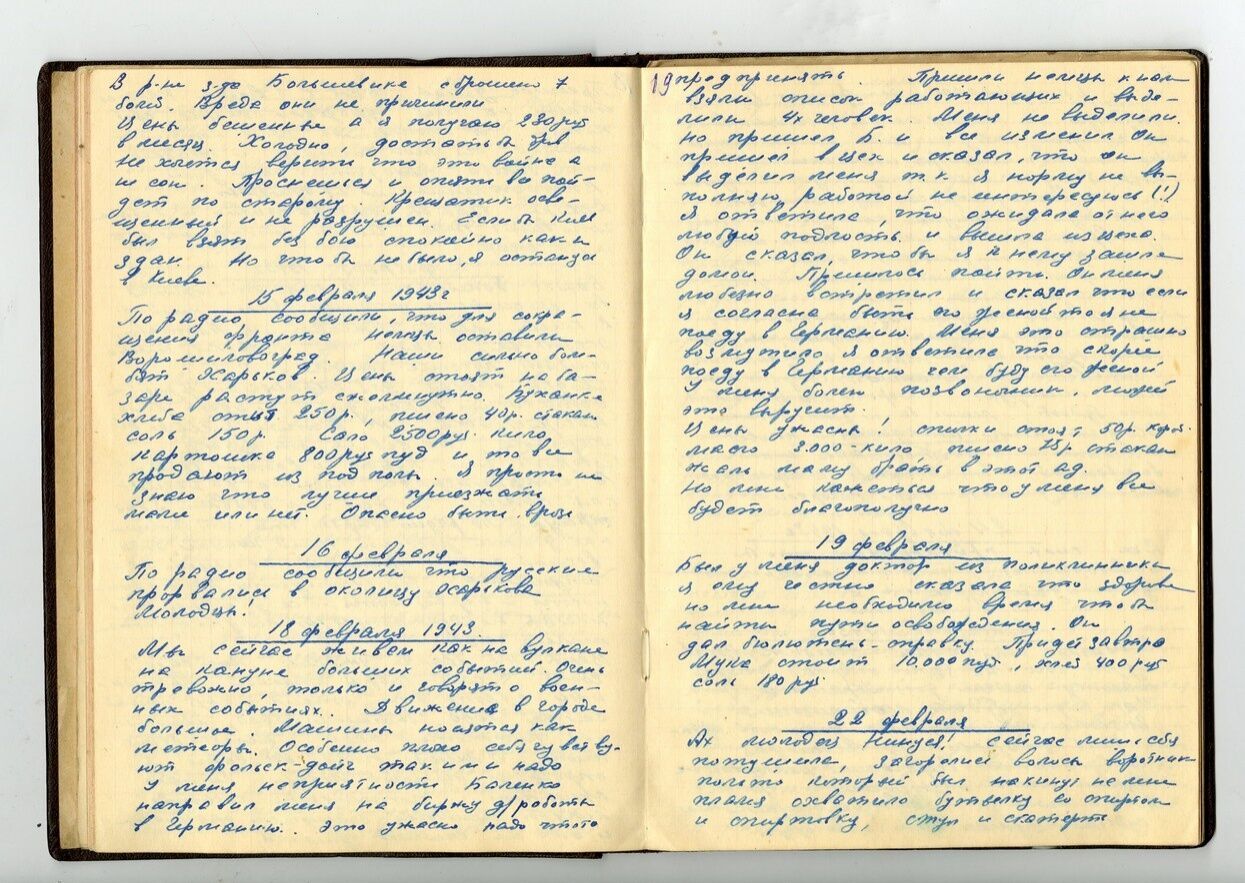 В р-не з-да Большевике сброшено 7
бомб. Вреда они не причинили.
Цены бешенные а я получаю 230 руб
в месяц. Холодно, достать б дров
не хочется верить что это война а
не сон. Проснешься и опять все пой-
дет по старому. Крещатик осве-
щенный и не разрушен. Если бы Киев
был взят без бою спокойно как и
здан. Но что бы не было, я останусь
в Киеве.
15 февраля 1943 г
По радио сообщили, что для сокра-
щения фронта немцы оставили
Ворошиловоград. Наши сильно бом-
бят Харьков. Цены стоят на ба-
заре растут ежеминутно. Буханка
хлеба стоит 250 р, пшено 40 р. стакан
соль 150 р. Сало 2500 руб. кило
картошка 800 руб пуд и то все
продают из под полы. Я просто не
знаю что лучше приезжать
маме или нет. Опасно быть врозь
16 февраля
По радио сообщили что русские
прорвались в околицу Харькова
Молодцы!
18 февраля 1943.
Мы сейчас живем как на вулкане
на кануне больших событий. Очень
тревожно, только и говорят о воен-
ных событиях. Движение в городе
большое. Машины носятся как
метеоры. Особенно плохо себя чувству-
ют фольск-дойч так им и надо
У меня неприятности Баленко
направил меня на биржу д/работы
в Германию. Это ужасно надо что то
19 предпринять. Пришли немцы к нам
взяли список работающих и выде-
лили 4х человек. Меня не выделили.
но пришел Б. и все изменил Он
пришел в цех и сказал, что он
выделил меня т.к. я норму не вы-
полняю, работой не интересуюсь (!)
Я ответила что ожидала от него
любую подлость и вышла из цеха.
Он сказал, чтобы я к нему зашла
домой. Пришлось пойти. Он меня
любезно встретил и сказал что если
я согласна быть его женой то я не
поеду в Германию. Меня это страшно
возмутило я ответила что скорее
поеду в Германию чем буду его женой
У меня болен позвоночник, может
это выручит.
Цены ужасны! спички стоят 50 р. короб.
масло 3.000 - кило пшено 45 р стакан
Жаль маму брать в этот ад.
Но мне кажеться что у меня все
будет благополучно
19 февраля
Был у меня доктор из поликлинники
Я ему честно сказала что здорова
но мне необходимо время чтобы
найти пути освобождения. Он
дал бюлютень-справку. Придет завтра
Мука стоит 10.000 пуд, хлеб 400 руб
соль 180 руб.
22 февраля
Ах молодец Нинуся! Сейчас лишь себя
потушила, загорелись волосы воротник
пальто который был накинут на мне
пламя охватило бутылку со спиртом
и спиртовку, стул и скатерть